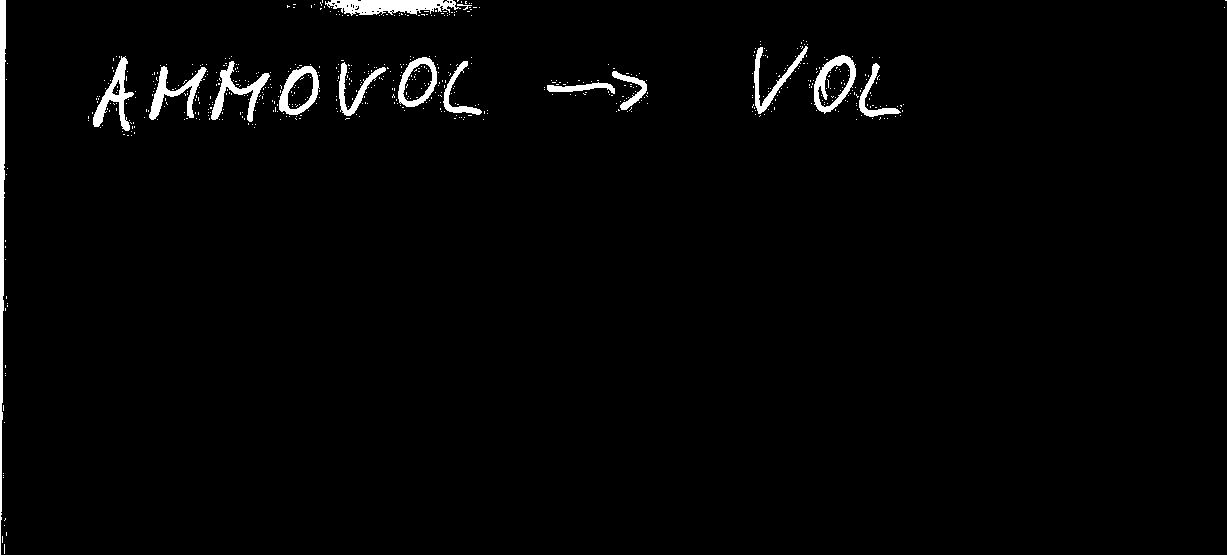 AMMOVOL → VOL